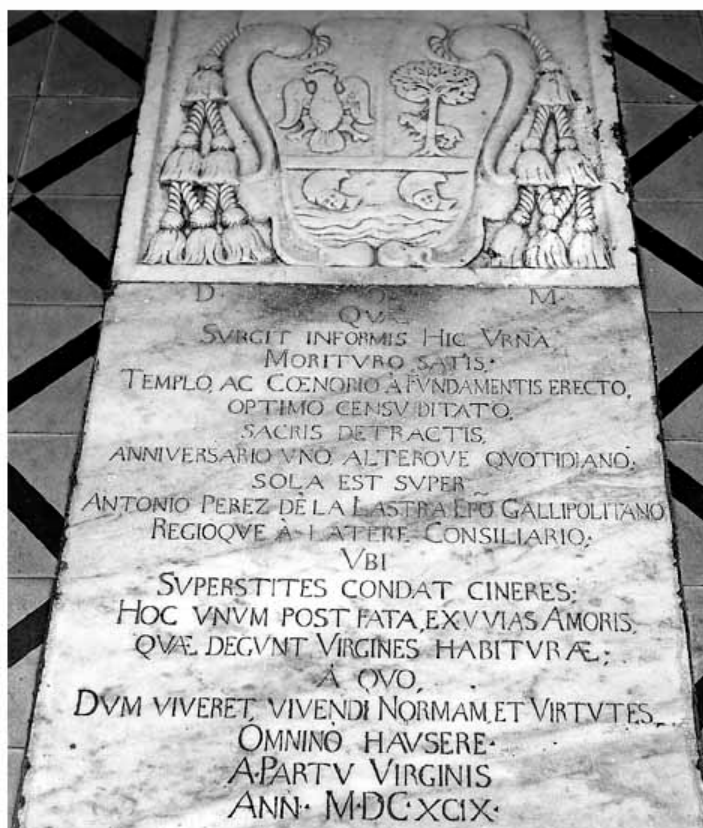 D. O. M.
QUÆ
SVRGIT INFORMIS HIC VRNA
MORITVRO SATIS.
TEMPLO, AC CŒNOBIO À FVNDAMENTIS ERECTO,
OPTIMO CENSV DITATO,
SACRIS DETRACTIS,
ANNIVERSARIO VNO, ALTEROVE QVOTIDIANO;
SOLA EST SUPER
ANTONIO PEREZ DÈ LA LASTRA EPÕ GALLIPOLITANO
REGIOQVE À LATERE CONSILIARIO;
VBI
SVPERSTITES CONDAT CINERES;
HOC VNVM POST FATA, EXVVIAS AMORIS,
QVÆ DEGVNT VIRGINES HABITVRÆ;
À QVO,
DVM VIVERET, VIVENDI NORMAM, ET VIRTVTES,
OMNINÒ HAVSERE.
A PARTV VIRGINIS
ANN. M.DC.XCIX.